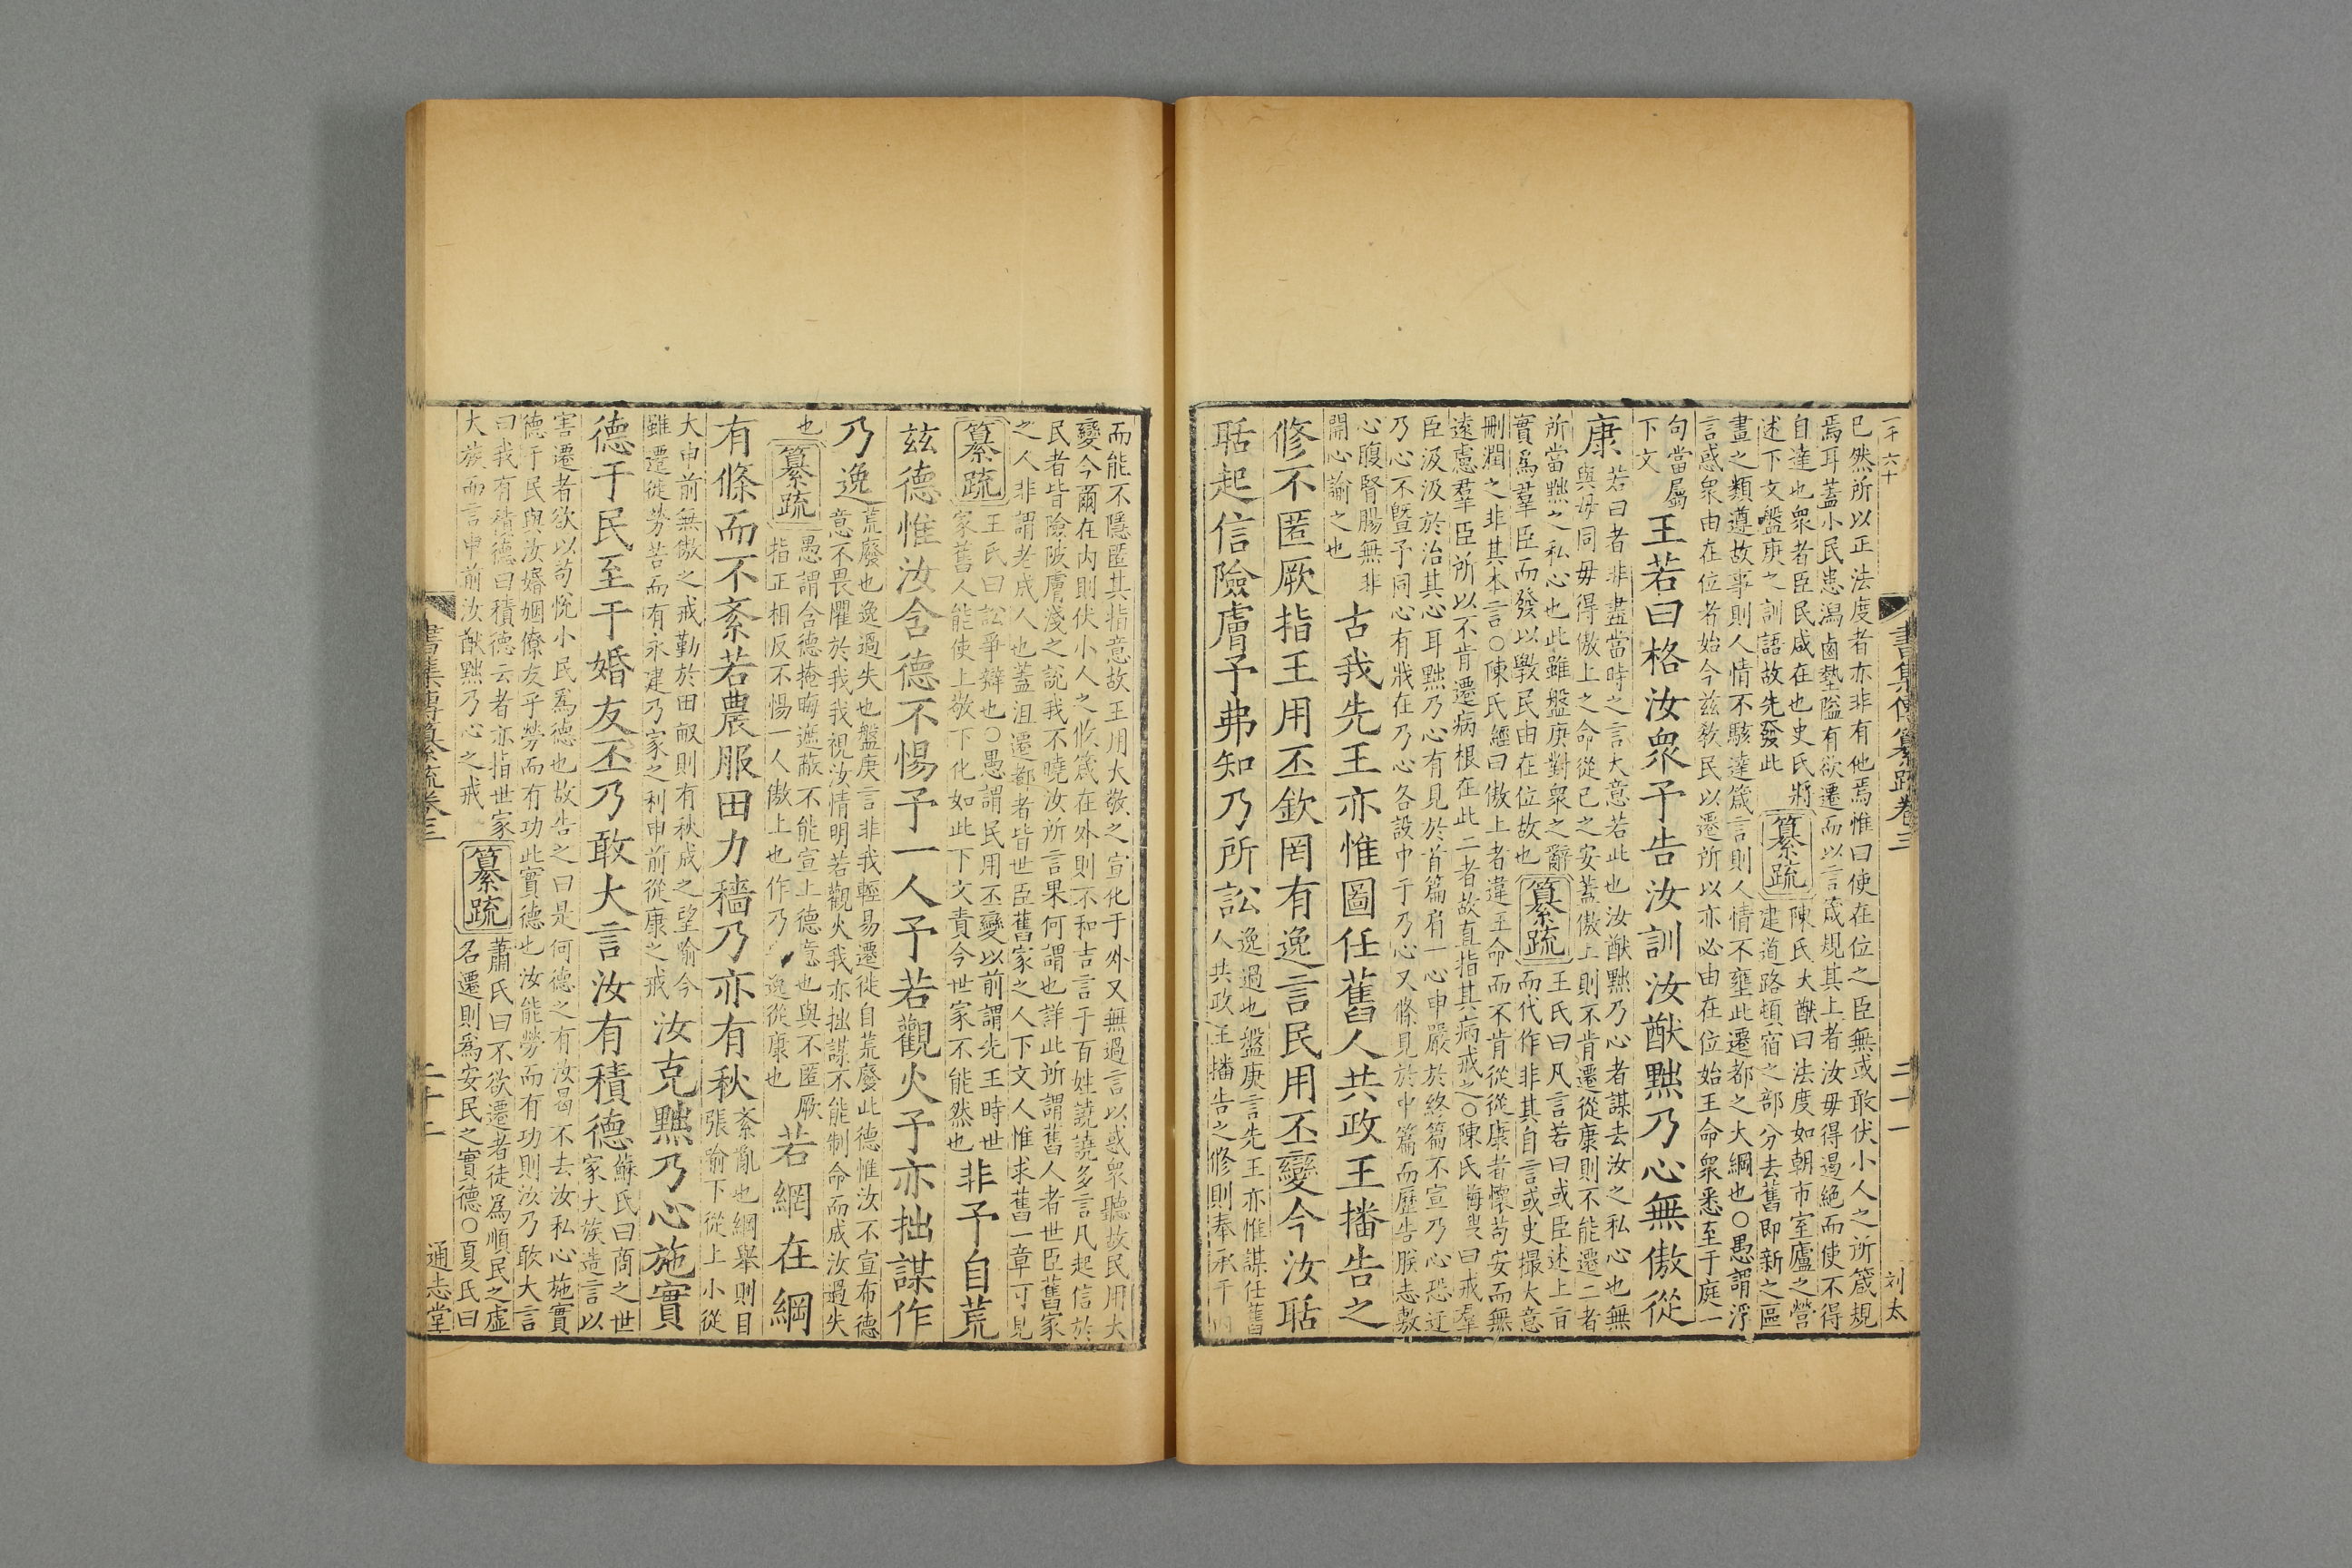 一千六十
書集傳纂疏卷三
二十一
刘太
已然所以正法度者亦非有他焉惟曰使在位之臣無或敢伏小人之所箴規
焉耳蓋小民患潟鹵墊隘有欲遷而以言箴規其上者汝毋得遏絕而使不得
自達也衆者臣民咸在也史氏將
述下文盤庚之訓語故先發此
纂疏
陳氏大猷曰法度如朝市室廬之營
建道路頓宿之部分去舊即新之區
畫之類遵故事則人情不駭達箴言則人情不壅此遷都之大綱也○愚謂浮
言惑衆由在位者始今兹敎民以遷所以亦必由在位始王命衆悉至于庭一
句當屬
下文
王若曰格汝衆予告汝訓汝猷黜乃心無傲從
康
若曰者非盡當時之言大意若此也汝猷黜乃心者謀去汝之私心也無
與毋同毋得傲上之命從己之安蓋傲上則不肯遷從康則不能遷二者
所當黜之私心也此雖盤庚對衆之辭
實爲羣臣而發以斅民由在位故也
纂疏
王氏曰凡言若曰或臣述上旨
而代作非其自言或史撮大意
刪潤之非其本言○陳氏經曰傲上者違王命而不肯從從康者懷苟安而無
遠慮羣臣所以不肯遷病根在此二者故直指其病戒之○陳氏梅叟曰戒羣
臣汲汲於治其心耳黜乃心有見於首篇肩一心申嚴於終篇不宣乃心恐迂
乃心不暨予同心有戕在乃心各設中于乃心又條見於中篇而歷告朕志敷
心腹腎腸無非
開心諭之也
古我先王亦惟圖任舊人共政王播告之
修不匿厥指王用丕欽罔有逸言民用丕變今汝聒
聒起信險膚予弗知乃所訟
逸過也盤庚言先王亦惟謀任舊
人共政王播告之修則奉承于内
而能不隱匿其指意故王用大敬之宣化于外又無過言以惑衆聽故民用大
變今爾在内則伏小人之攸箴在外則不和吉言于百姓譊譊多言凡起信於
民者皆險陂膚淺之說我不曉汝所言果何謂也詳此所謂舊人者世臣舊家
之人非謂老成人也蓋沮遷都者皆世臣舊家之人下文人惟求舊一章可見
纂疏
王氏曰訟爭辯也○愚謂民用丕變以前謂先王時世
家舊人能使上敬下化如此下文責今世家不能然也
非予自荒
兹德惟汝含德不惕予一人予若觀火予亦拙謀作
乃逸
荒廢也逸過失也盤庚言非我輕易遷徙自荒廢此德惟汝不宣布德
意不畏懼於我我視汝情明若觀火我亦拙謀不能制命而成汝過失
也
纂疏
愚謂含德掩晦遮蔽不能宣上德意也與不匿厥
指正相反不惕一人傲上也作乃逸從康也
若網在綱
有條而不紊若農服田力穡乃亦有秋
紊亂也綱舉則目
張喻下從上小從
大申前無傲之戒勤於田畝則有秋成之望喻今
雖遷徙勞苦而有永建乃家之利申前從康之戒
汝克黜乃心施實
德于民至于婚友丕乃敢大言汝有積德
蘇氏曰商之世
家大族造言以
害遷者欲以苟悅小民爲德也故告之曰是何德之有汝曷不去汝私心施實
德于民與汝婚姻僚友乎勞而有功此實德也汝能勞而有功則汝乃敢大言
曰我有積德曰積德云者亦指世家
大族而言申前汝猷黜乃心之戒
纂疏
蕭氏曰不欲遷者徒爲順民之虛
名遷則爲安民之實德○夏氏曰
書集傳纂疏卷三
二十一
通志堂